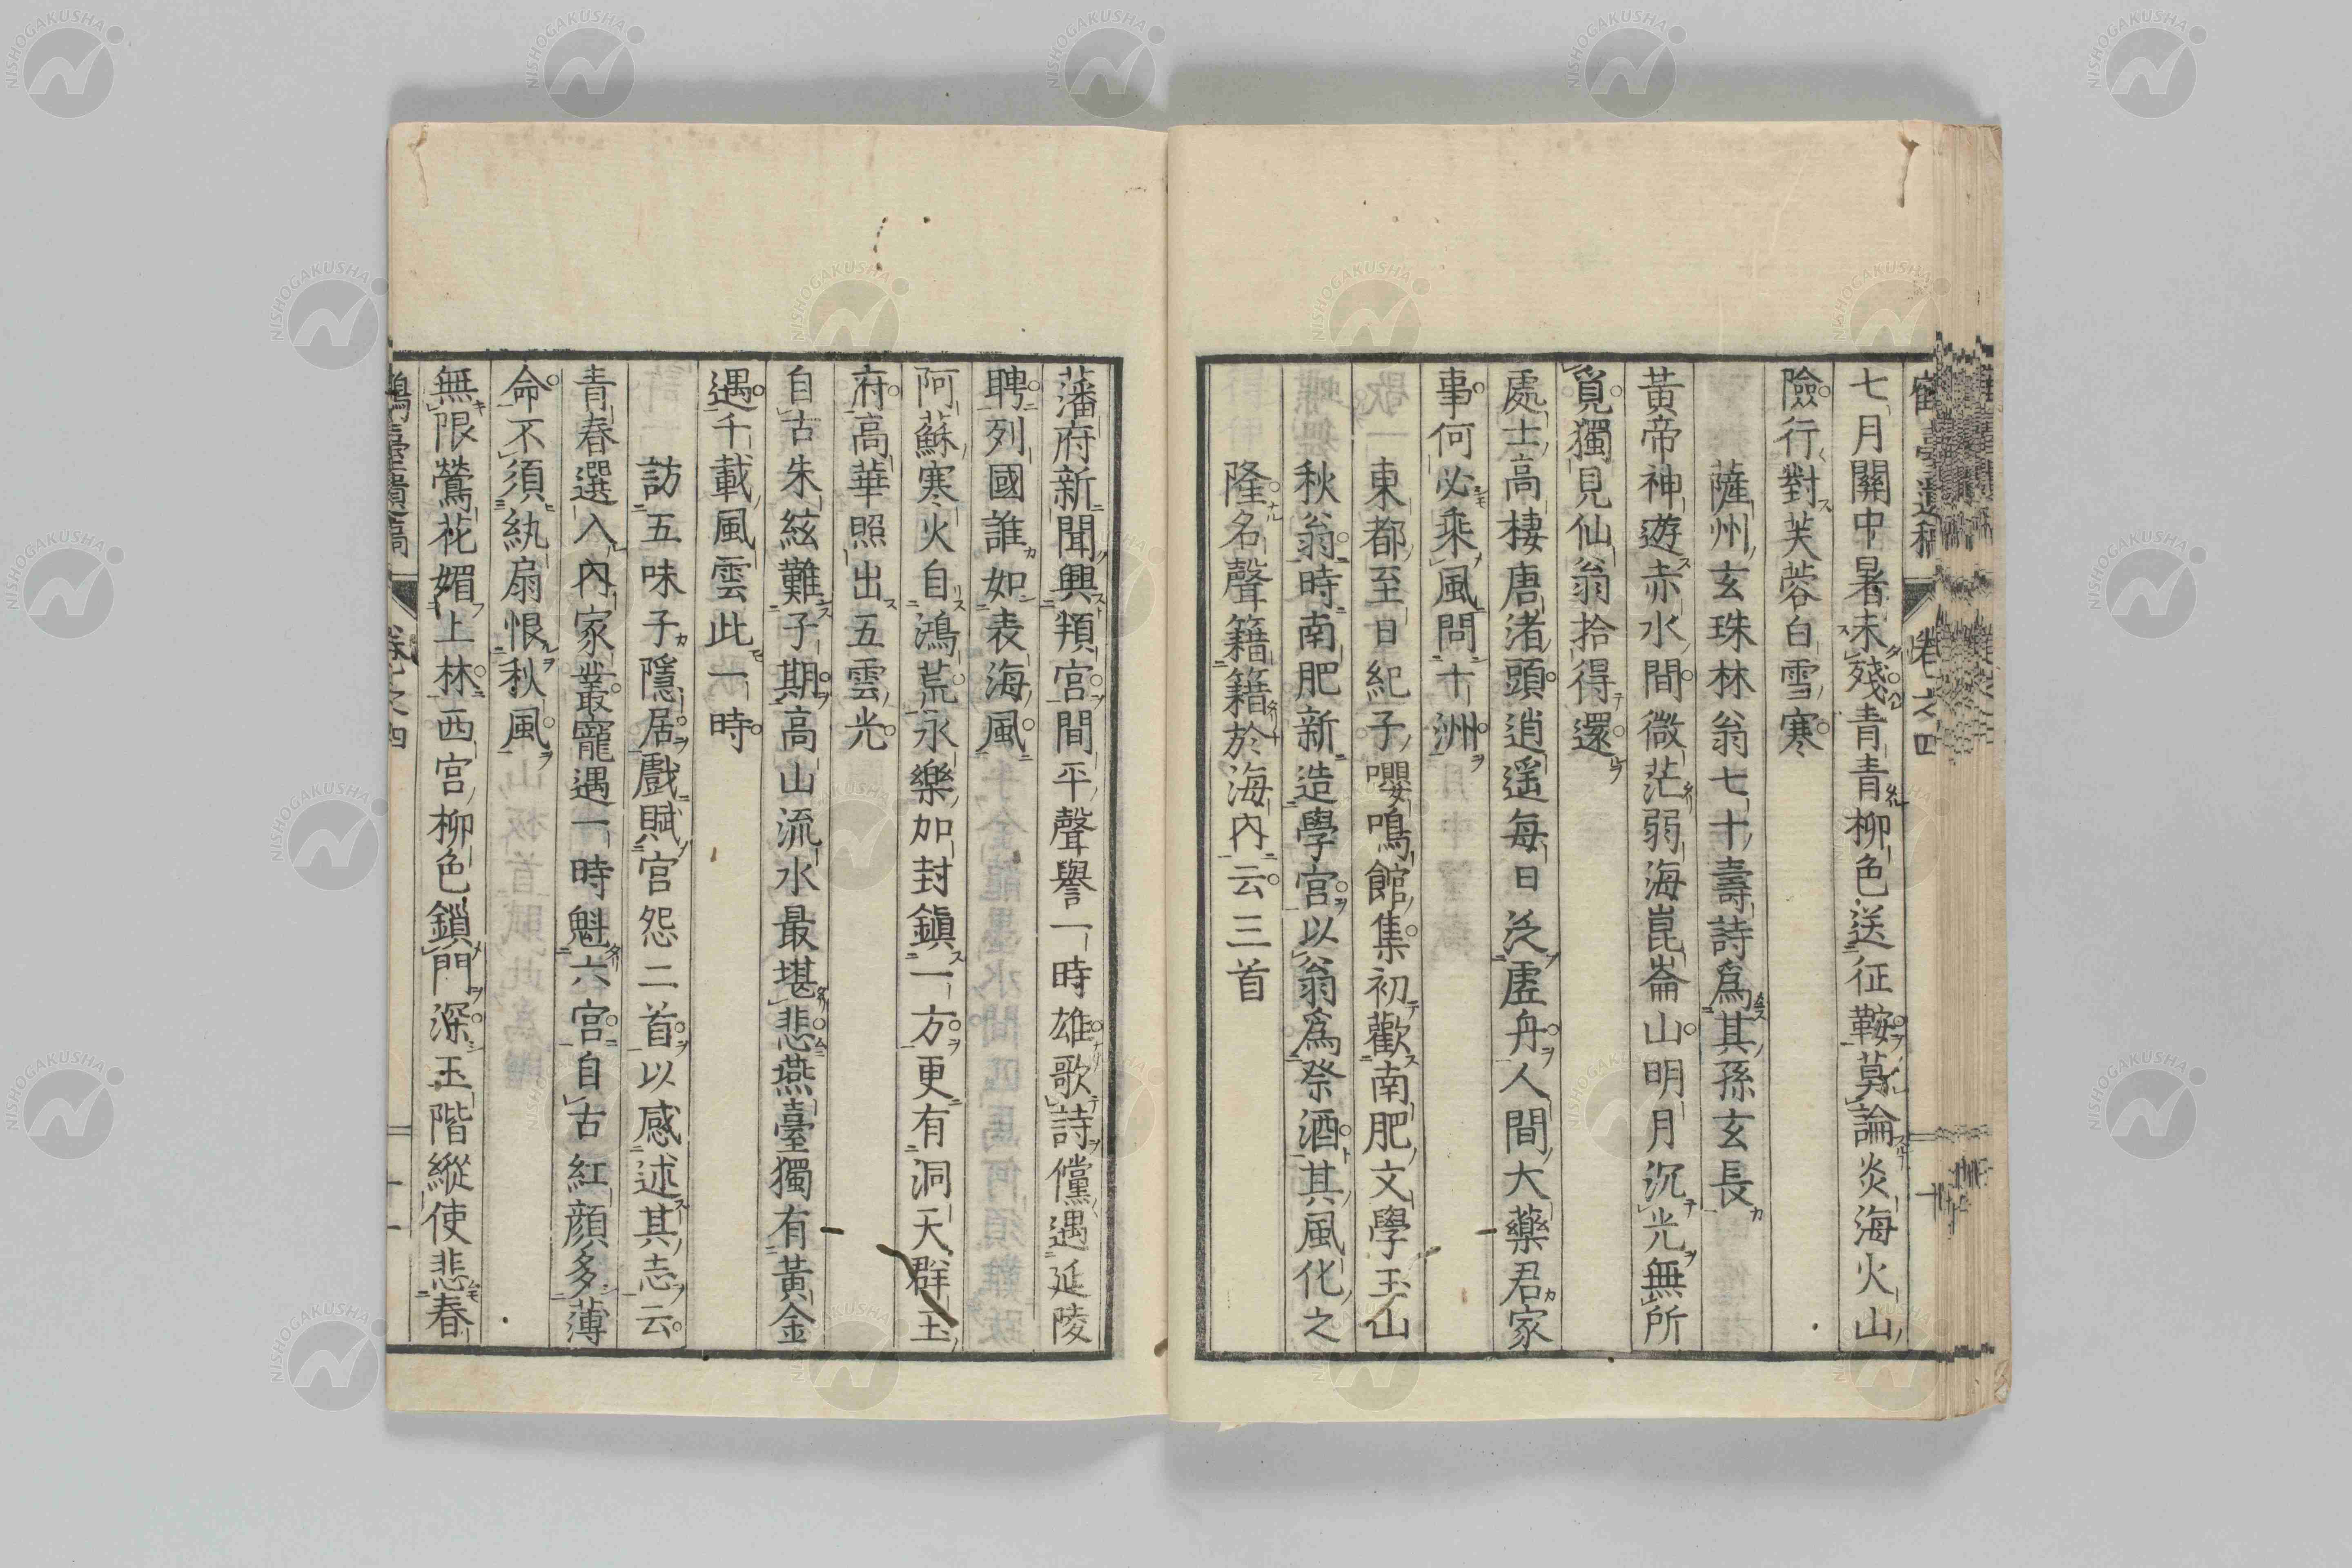 七月關中暑未殘青青柳色送征鞍莫論炎海火山
險行對芙蓉白雪寒
薩州玄珠林翁七十壽詩爲其孫玄長
黃帝神遊赤水間微茫弱海崑崙山明月沉光無所
覓獨見仙翁拾得還
處士高棲唐渚頭逍遥每日泛虛舟人間大藥君家
事何必乘風問十洲
東都至日紀子嚶鳴館集初歡南肥文學玉山
秋翁時南肥新造學宮以翁爲祭酒其風化之
隆名聲籍籍於海內云三首
藩府新聞興頖宮間平聲譽一時雄歌詩儻遇延陵
聘列國誰如表海風
阿蘇寒火自鴻荒永樂加封鎭一方更有洞天群玉
府高華照出五雲光
自古朱絃難子期高山流水最堪悲燕臺獨有黃金
遇千載風雲此一時
訪五味子隱居戲賦宮怨二首以感述其志云
青春選入內家叢寵遇一時魁六宮自古紅顏多薄
命不須紈扇恨秋風
無限鶯花媚上林西宮柳色鎖門深玉階縱使悲春